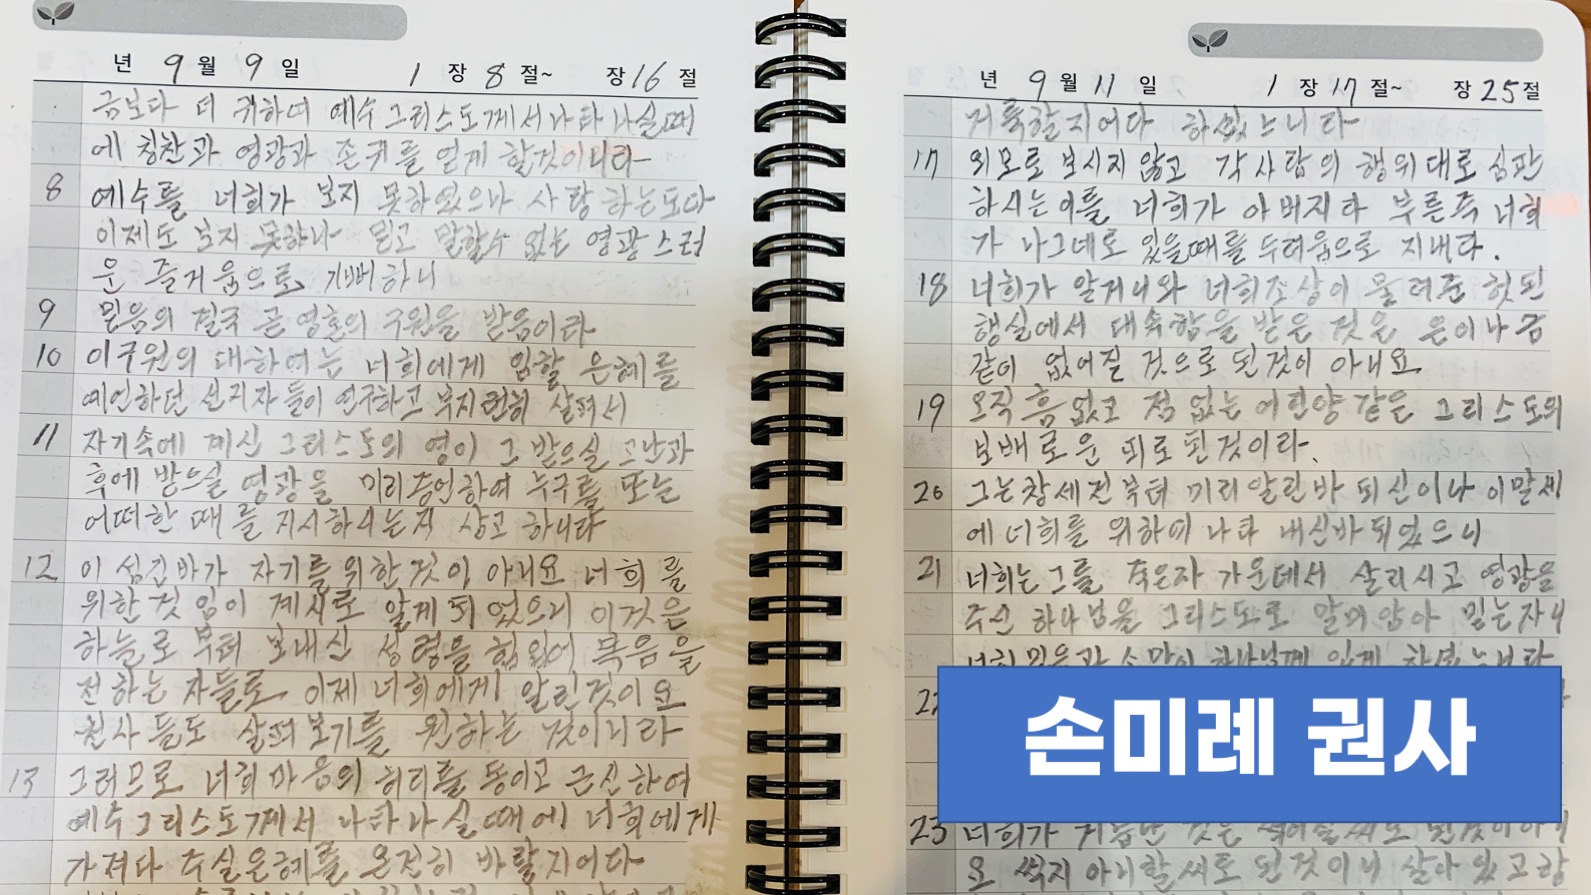 년 9월 9일 1장 8절~ 장 16절
금보다 더 귀하여 예수 그리스도께서 나타나실 때
에 칭찬과 영광과 존귀를 얻게 할것이니라
8 예수를 너희가 보지 못하였으나 사랑하는도다
이제도 보지 못하나 믿고 말할수 없는 영광스러
운 즐거움으로 기뻐하니
9 믿음의 결국 곧 영혼의 구원을 받음이라
10 이구원의 대하여는 너희에게 임할 은혜를
예언하던 선지자들이 연구하고 부지런히 살펴서
11 자기속에 계신 그리스도의 영이 그 받으실 고난과
후에 받으실 영광을 미리증언하여 누구를 또는
어떠한 때를 지시하시는지 상고하니라
12 이 섬긴바가 자기를 위한것이 아니요 너희를
위한것 임이 계시로 알게 되었으니 이것은
하늘로 부터 보내신 성령을 힘입어 복음을
전하는 자들로 이제 너희에게 알린것이요
천사들도 살펴보기를 원하는 것이니라
13 그러므로 너희 마음의 허리를 동이고 근신하여
예수그리스도께서 나타나실 때에 너희에게
가져다 주실은혜를 온전히 바랄지어다
년 9월 11일 1장 17절~ 장 25절
거룩할지어다 하셨느니라
17 외모로 보시지 않고 각사람의 행위대로 심판
하시는이를 너희가 아버지라 부른즉 너희
가 나그네로 있을때를 두려움으로 지내라.
18 너희가 알거니와 너희조상이 물려준 헛된
행실에서 대속함을 받은 것은 은이나 금
같이 없어질 것으로 된것이 아니요
19 오직 흠없고 점없는 어린양같은 그리스도의
보배로운 피로 된것이라.
20 그는 창세전부터 미리알린바 되신이나 이말세
에 너희를 위하여 나타 내신바 되었으니
21 너희는 그를 죽은자 가운데서 살리시고 영광을
주신 하나님을 그리스도로 말미암아 믿는자니
너희 믿음과 소망이 하나님께 있게 하셨느니라
22
손미례 권사
23 너희가 거듭난 것은 썩어질씨로 된것이아니
요 썩지 아니할씨로 된것이니 살아 있고 항